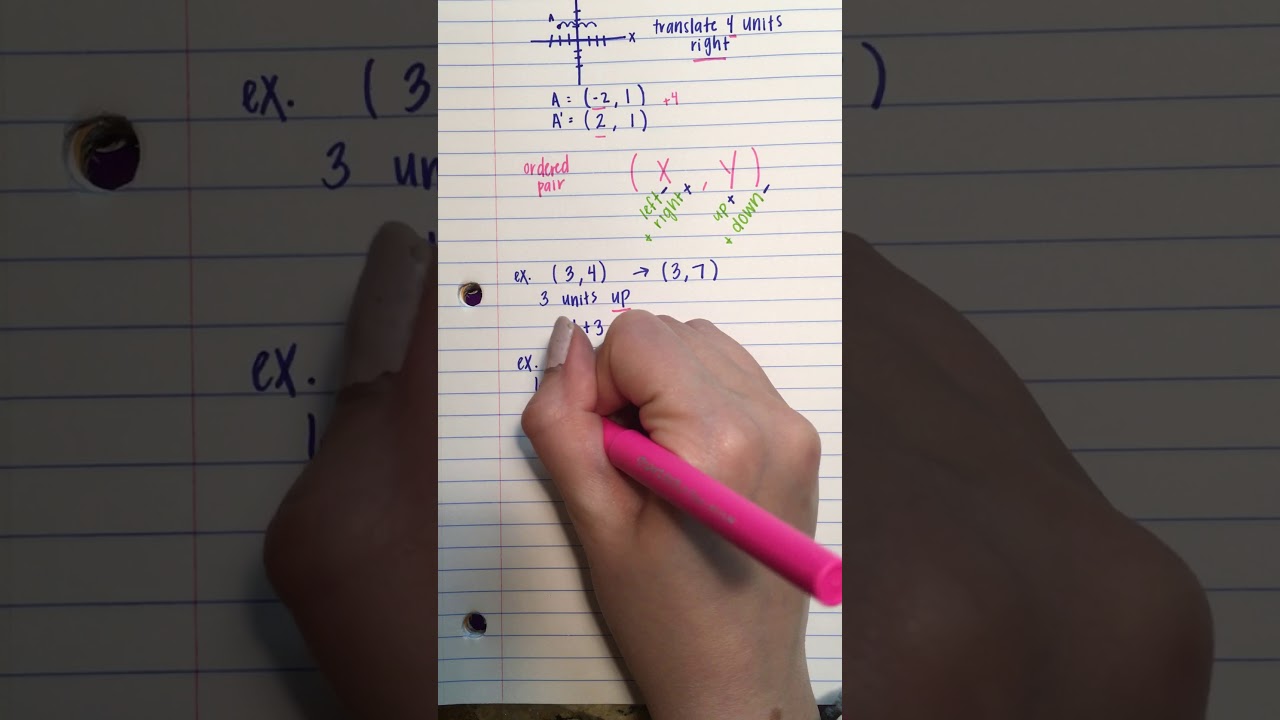 A
x
translate 4 units
right
A = (-2, 1) +4
A' = (2, 1)
ordered
pair
(X, Y)
left - right + up + down -
ex. (3,4) → (3,7)
3 units up
+3
ex.
1